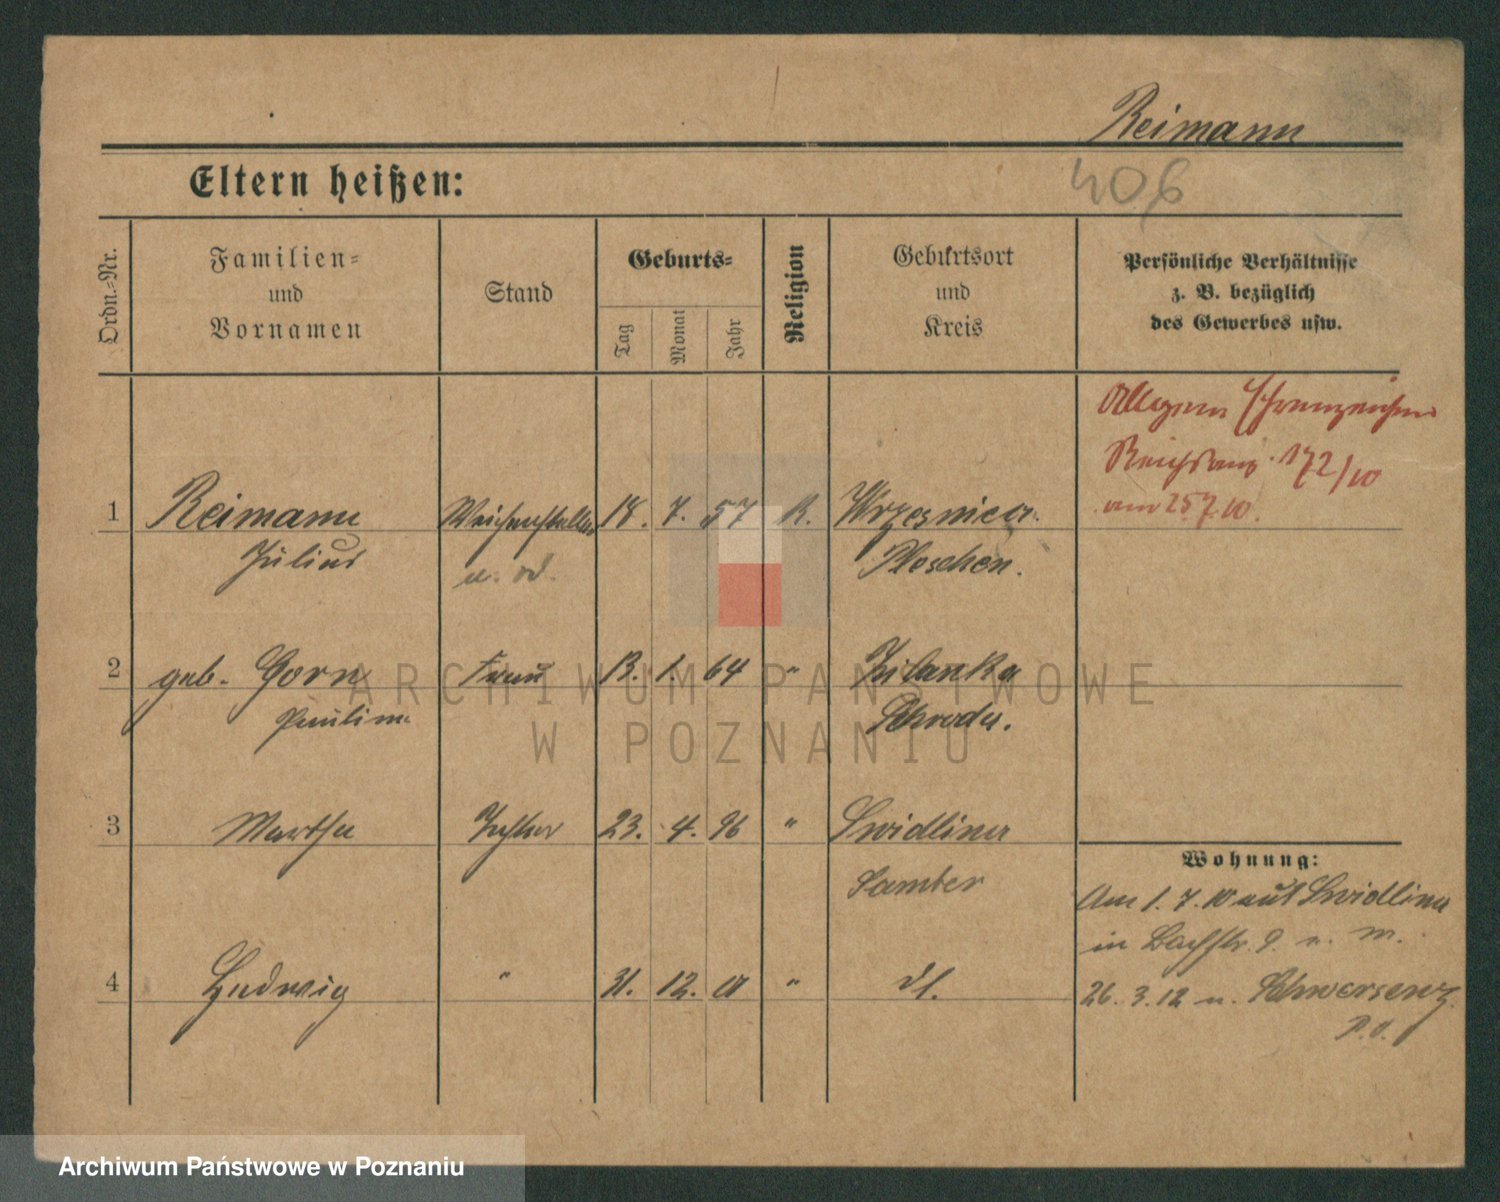 Reimann
Eltern heißen:
406
Ordn.-Nr.
Familien-
und
Vornamen
Stand
Geburts-
Tag
Monat
Jahr
Religion
Geburtsort
und
Kreis
Persönliche Verhältnisse
z. B. bezüglich
des Gewerbes usw.
172/10
25 7. 10.
1 Reimann Weichensteller 18. 7. 57 K. Wrzesnica
Julius Pleschen.
2 geb. Gorn Frau 13. 1. 64 "
Pauline Schroda.
3 Martha 23. 4. 96 " Swidlina
Samter
4 Hedwig " 31. 12. 01 "
Wohnung:
Am 1. 7. 10 aus Swidlina
in Bachstr. 9
26. 3. 12 n. Schwersenz
P.O.
ARCHIWUM PAŃSTWOWE
W POZNANIU
Archiwum Państwowe w Poznaniu